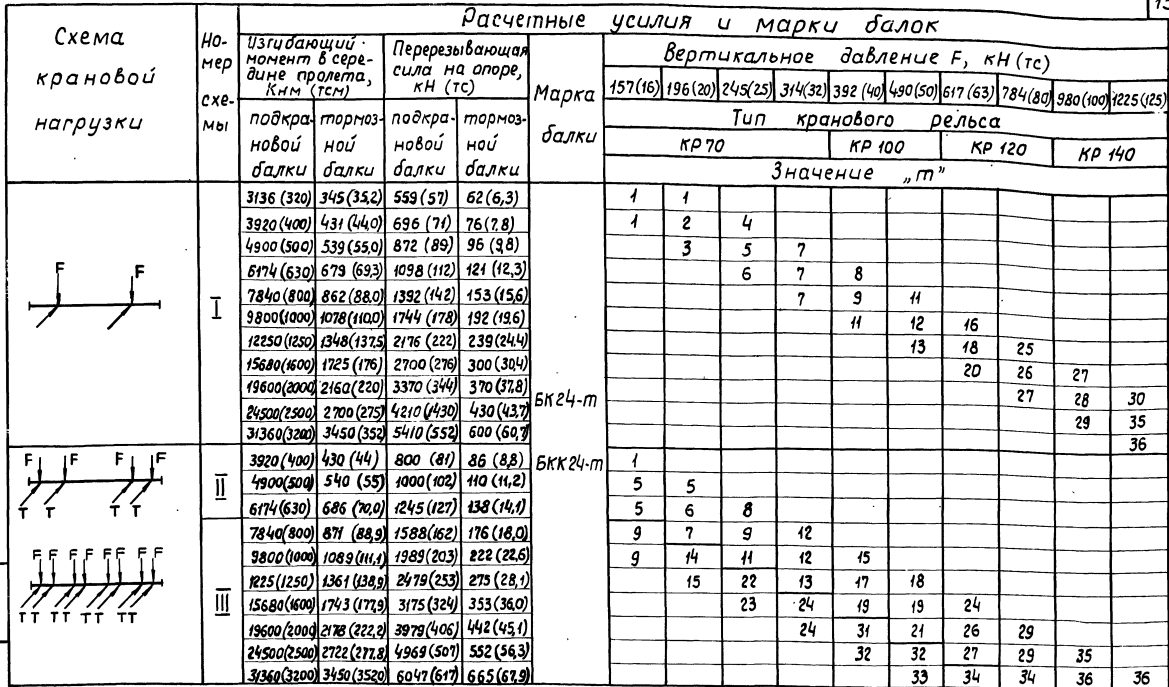 13
Расчетные усилия и марки балок
Схема крановой нагрузки
Но- мер схе- мы
Изгибающий момент в сере- дине пролета, Кнм (тсм)
Перерезывающая сила на опоре, кН (тс)
Марка балки
Вертикальное давление F, кН (тс)
157(16) 196(20) 245(25) 314(32) 392(40) 490(50) 617(63) 784(80) 980(100) 1225(125)
подкра- новой балки
тормоз- ной балки
подкра- новой балки
тормоз- ной балки
Тип кранового рельса
КР 70 КР 100 КР 120 КР 140
Значение „m"
3136 (320) 345(35,2) 559(57) 62(6,3) 1 1
3920(400) 431(44,0) 696(71) 76(7,8) 1 2 4
4900(500) 539(55,0) 872(89) 96(9,8) 3 5 7
6174(630) 679(69,3) 1098(112) 121(12,3) 6 7 8
7840(800) 862(88,0) 1392(142) 153(15,6) 7 9 11
9800(1000) 1078(110,0) 1744(178) 192(19,6) 11 12 16
12250(1250) 1348(137,5) 2176(222) 239(24,4) 13 18 25
15680(1600) 1725(176) 2700(276) 300(30,4) 20 26 27
19600(2000) 2160(220) 3370(344) 370(37,8) 27 28 30
24500(2500) 2700(275) 4210(1430) 430(43,7) 29 35
31360(3200) 3450(352) 5410(552) 600(60,7) 36
F F
I
БК24-m
3920(400) 430(44) 800(81) 86(8,8) 1
4900(500) 540(55) 1000(102) 110(11,2) 5 5
6174(630) 686(70,0) 1245(127) 138(14,1) 5 6 8
F F F F
T T T T
II
БКК24-m
7840(800) 871(88,9) 1588(162) 176(18,0) 9 7 9 12
9800(1000) 1089(111,1) 1989(203) 222(22,6) 9 14 11 12 15
1225(1250) 1361(138,9) 2479(253) 275(28,1) 15 22 13 17 18
15680(1600) 1743(177,9) 3175(324) 353(36,0) 23 24 19 19 24
19600(2000) 2178(222,2) 3979(406) 442(45,1) 24 31 21 26 29
24500(2500) 2722(277,8) 4969(507) 552(56,3) 32 32 27 29 35
31360(3200) 3450(3520) 6047(617) 665(67,9) 33 34 34 36 36
F F F F F F F F
T T T T T T T T
III